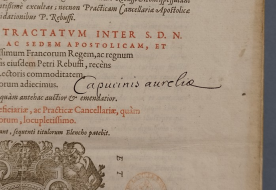 tissimè excultas; necnon Practicam Cancellariæ Apostolicæ
dationibus P. Rebuffi.
TRACTATVM INTER S. D. N.
AC SEDEM APOSTOLICAM, ET
simum Francorum Regem, ac regnum
is eiusdem Petri Rebuffi, recèns
ectoris commoditatem,
orum adiecimus.
Capucinis aureliæ
quàm antehac auctior & emendatior.
eneficiariæ, ac Practicæ Cancellariæ, quàm
orum, locupletissimo.
nt, sequenti titulorum Elencho patebit.